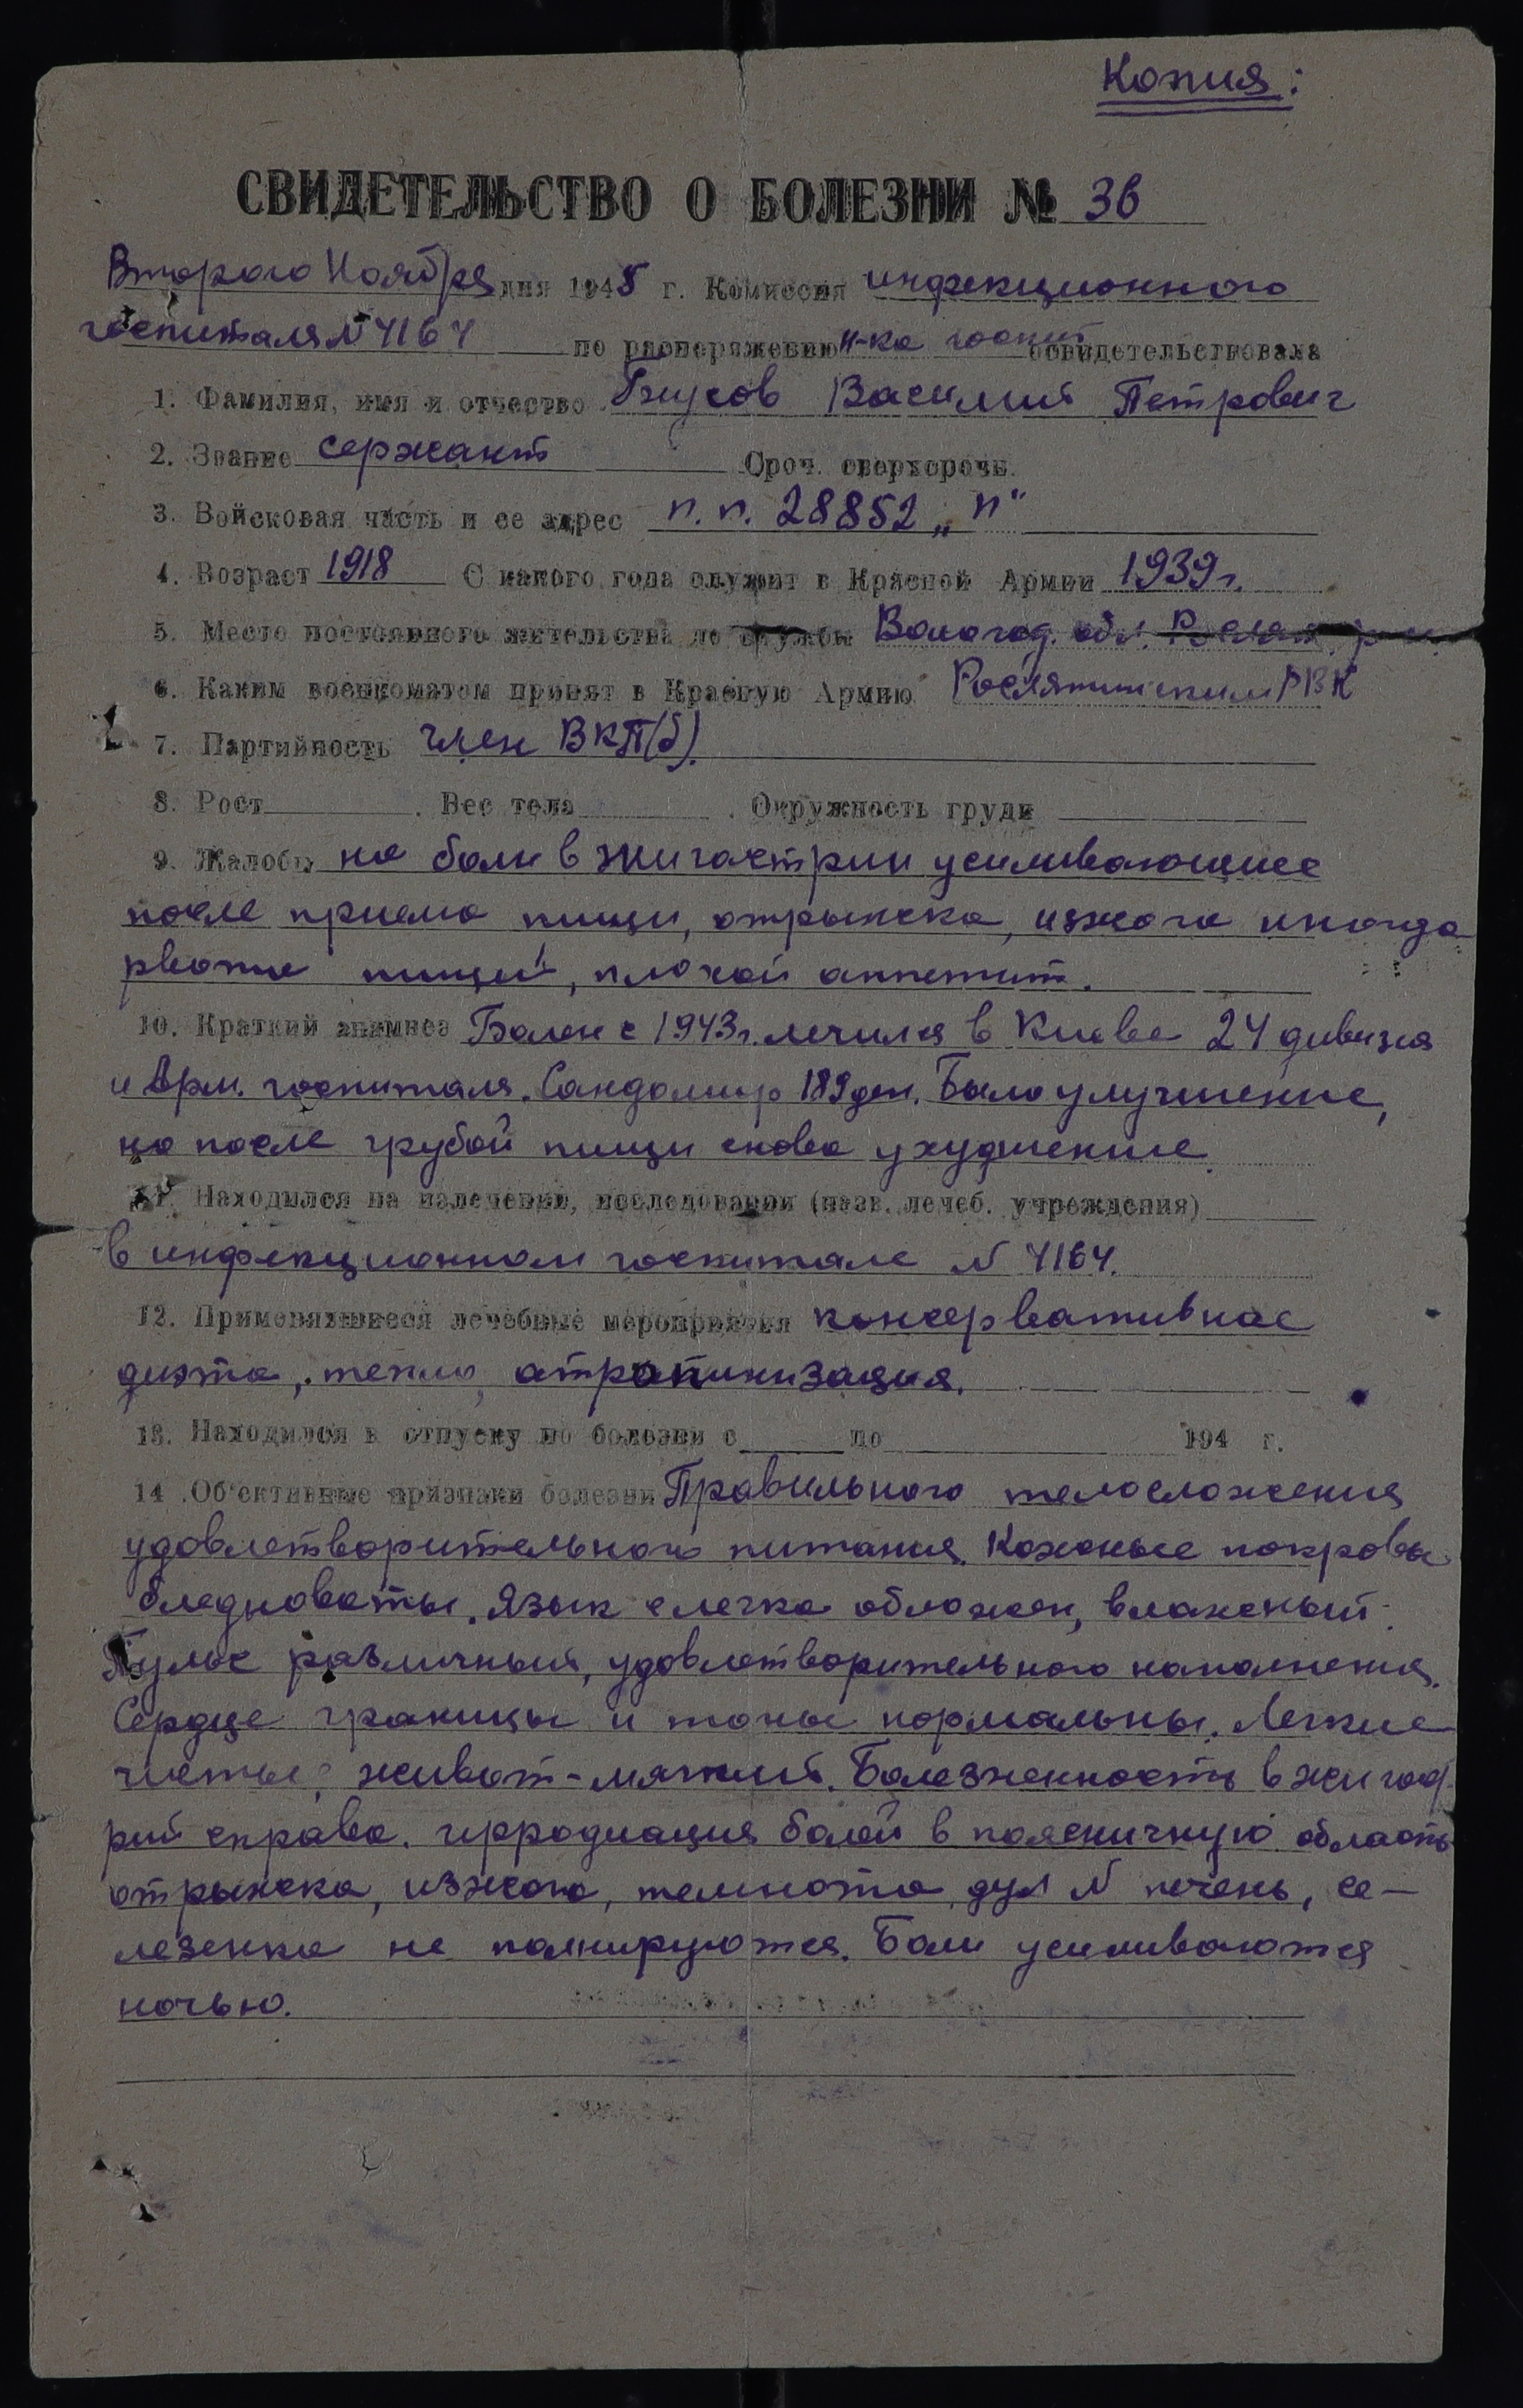 Копия:
СВИДЕТЕЛЬСТВО О БОЛЕЗНИ № 36
Второго Ноября дня 1945 г. Комиссия инфекционного
госпиталя N 4164 по распоряжению н-ка госпит освидетельствовала
1. Фамилия, имя и отчество Василий Петрович
2. Звание сержант Сроч. сверхсрочн.
3. Войсковая часть и ее адрес п.п. 28852 „П"
4. Возраст 1918 С какого года служит в Красной Армии 1939 г.
5. Место постоянного жительства до службы Вологод. обл.
6. Каким военкоматом принят в Красную Армию Рослятинским РВК
7. Партийность член ВКП(б).
8. Рост . Вес тела . Окружность груди
9. Жалобы на боли в эпигастрии усиливающиеся
после приема пищи, отрыжка, изжога иногда
рвота пищей, плохой аппетит.
10. Краткий анамнез Болен с 1943 г. лечился в Киеве 24
и Арм. госпиталя. Сандомир Было улучшение,
но после грубой пищи снова ухудшение.
11. Находился на излечении, исследовании (назв. лечеб. учреждения)
в инфекционном госпитале N 4164.
12. Применявшиеся лечебные мероприятия консервативное
диэта, тепло, атропинизация.
13. Находился в отпуску по болезни с по 194 г.
14. Об'ективные признаки болезни Правильного телосложения
удовлетворительного питания. Кожные покровы
бледноваты. Язык слегка обложен, влажный.
Пульс удовлетворительного наполнения.
Сердце границы и тоны нормальны. Легкие
чистые, живот - мягкий. Болезненность в эпигаст
рий справа. иррадиация болей в поясничную область
отрыжка, изжога, N печень, се-
лезенка не пальпируются. Боли усиливаются
ночью.